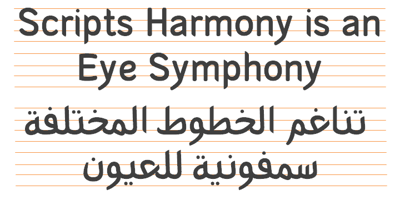 Scripts Harmony is an
Eye Symphony
تناغم الخطوط المختلفة
سمفونية للعيون